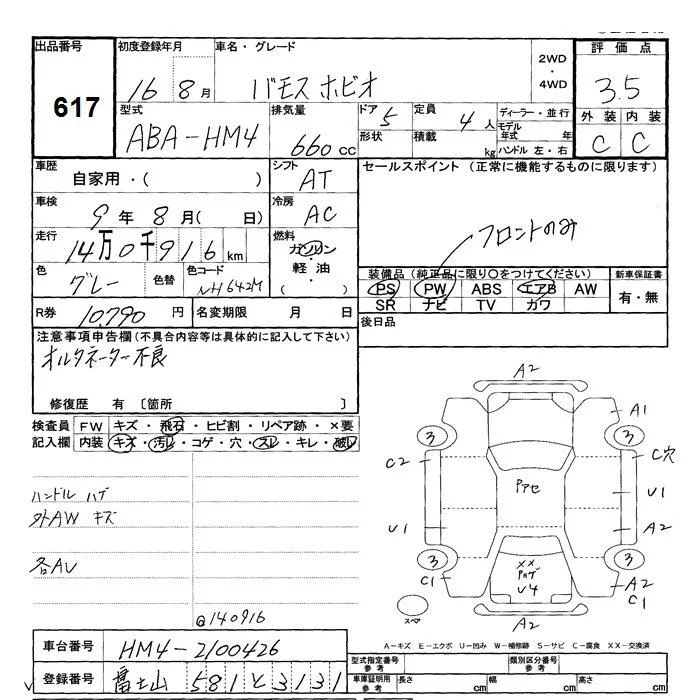 出品番号 617
初度登録年月 16 8月
車名・グレード バモスホビオ
2WD・4WD
評価点 3.5
外装 C 内装 C
型式 ABA-HM4
排気量 660cc
ドア 5
形状
定員 4人
積載 kg
ディーラー・並行
モデル年式 年
ハンドル 左・右
車歴 自家用・( )
シフト AT
セールスポイント (正常に機能するものに限ります)
フロントのみ
車検 9年8月( 日)
冷房 AC
走行 14万0千916km
燃料 ガソリン・軽油・( )
色 グレー 色替
色コード NH642M
装備品 (純正品に限り○をつけてください)
PS PW ABS エアB AW
SR ナビ TV カワ
新車保証書 有・無
R券 10790円
名変期限 月 日
後日品
注意事項申告欄(不具合内容等は具体的に記入して下さい)
オルタネーター不良
修復歴 有 〔箇所 〕
検査員記入欄
FW キズ・飛石・ヒビ割・リペア跡・×要
内装 キズ・汚レ・コゲ・穴・スレ・キレ・破レ
ハンドル ハゲ
外AW キズ
各AU
@140916
A2
A1
3 3
C2 C穴
Pアセ
U1
U1 A2
3 3
XX
Pハゲ
U4
C1 A2
C1
スペア
A2
A-キズ E-エクボ U-凹み W-補修跡 S-サビ C-腐食 XX-交換済
車台番号 HM4-2100426
登録番号 富士山 581 と 3131
型式指定番号 参考
類別区分番号 参考
車庫証明用 参考
長さ cm 幅 cm 高さ cm